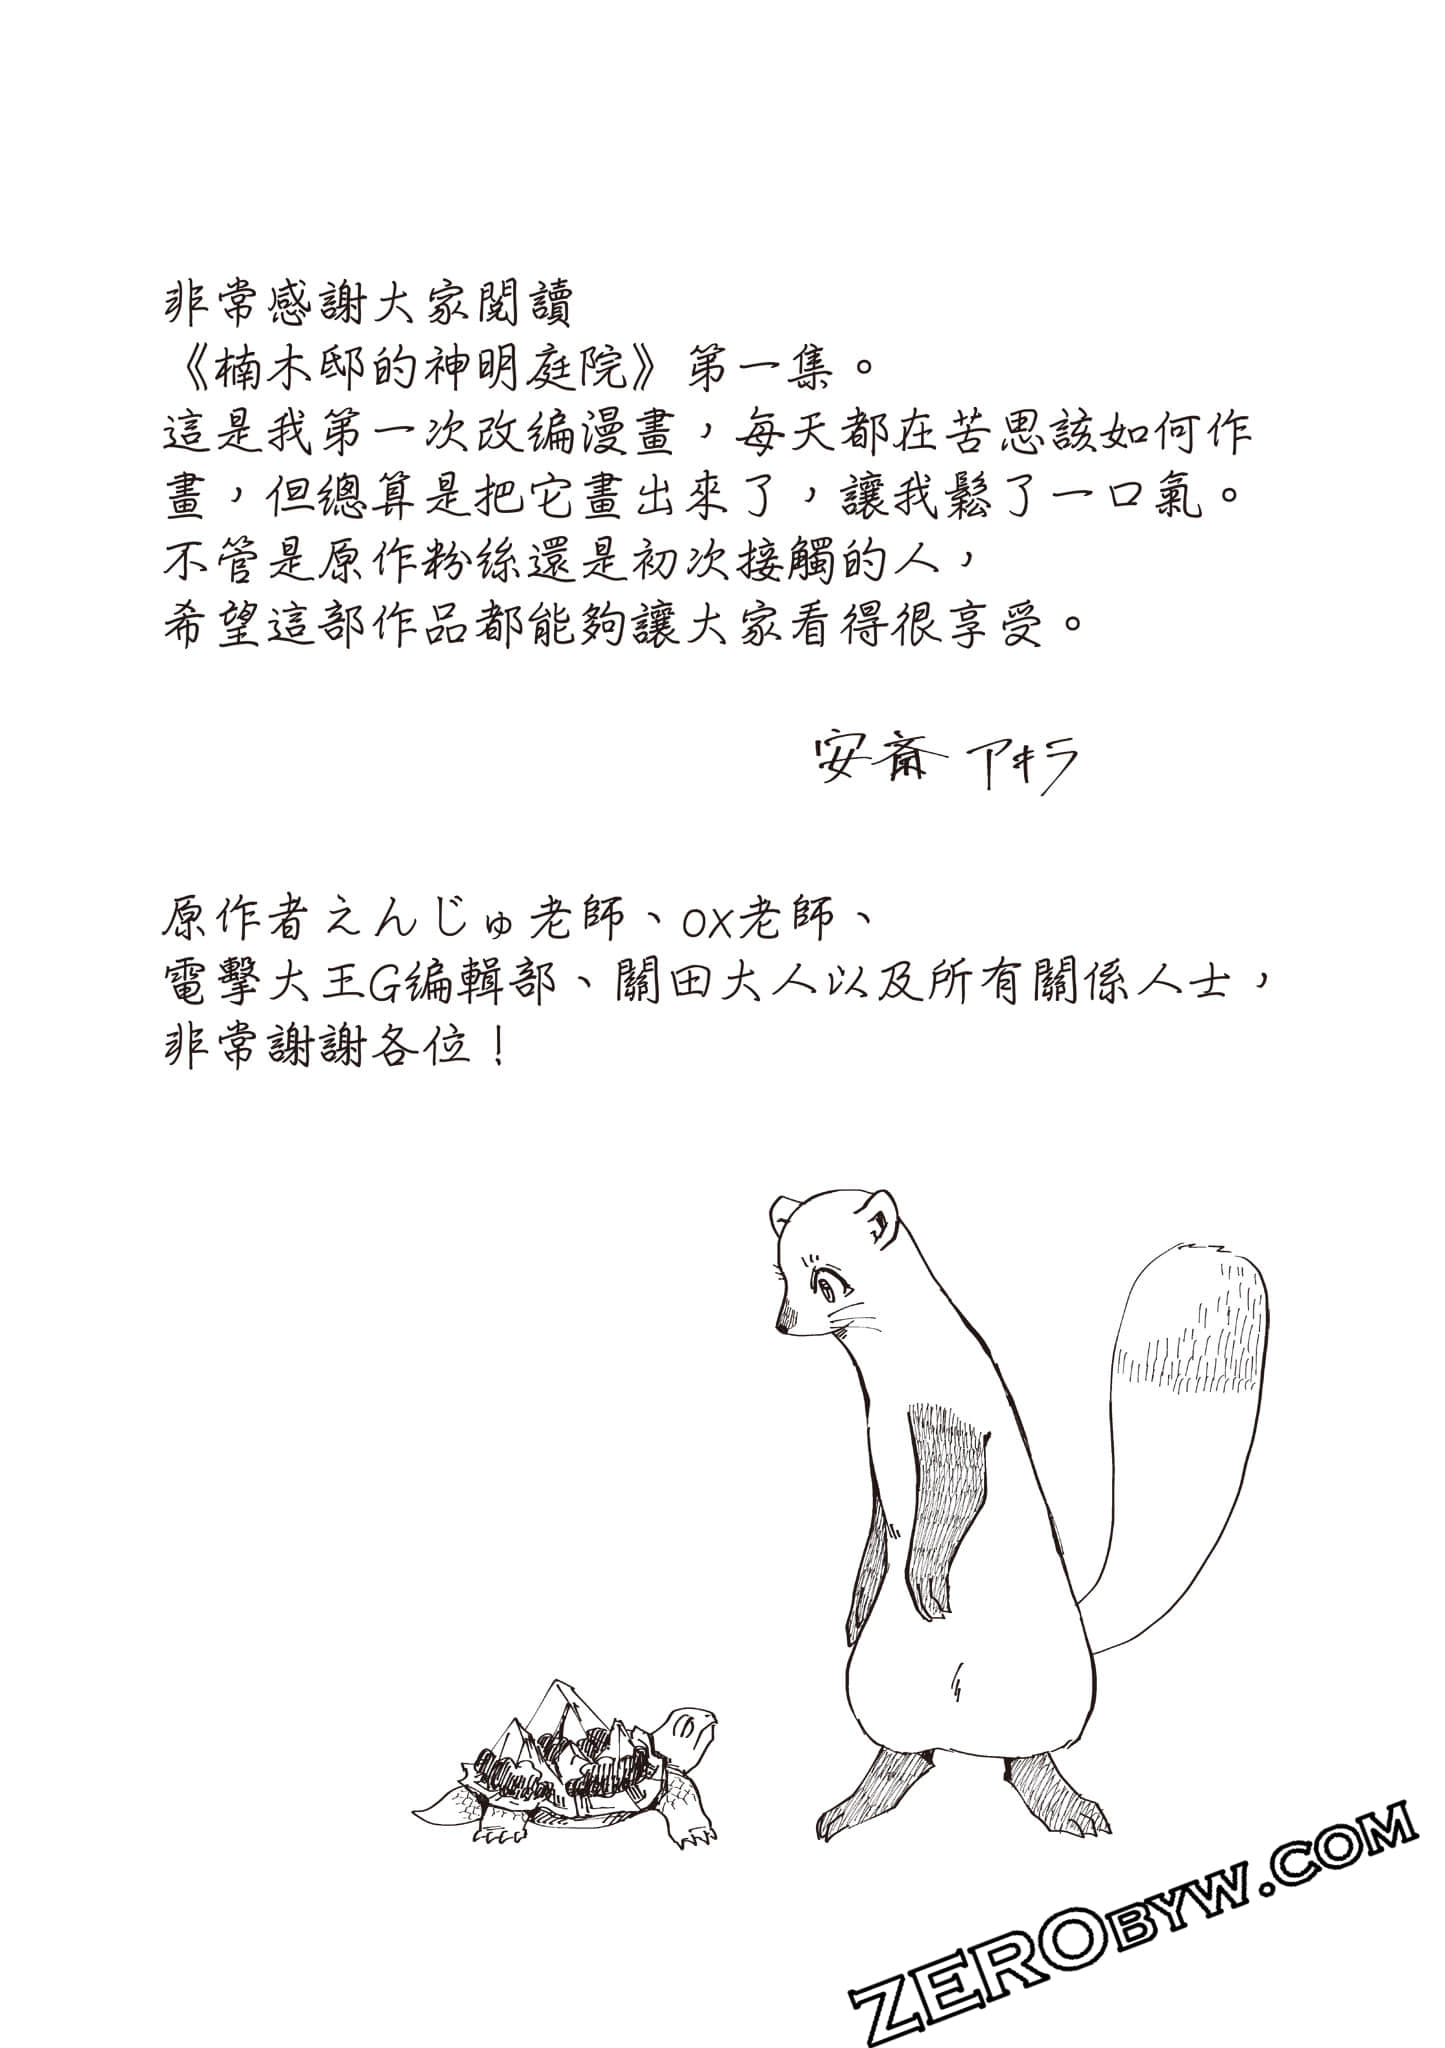 非常感謝大家閱讀
《楠木邸的神明庭院》第一集。
這是我第一次改編漫畫，每天都在苦思該如何作
畫，但總算是把它畫出來了，讓我鬆了一口氣。
不管是原作粉絲還是初次接觸的人，
希望這部作品都能夠讓大家看得很享受。
安斎 アキラ
原作者えんじゅ老師、ox老師、
電擊大王G編輯部、關田大人以及所有關係人士，
非常謝謝各位！
ZEROBYW.COM